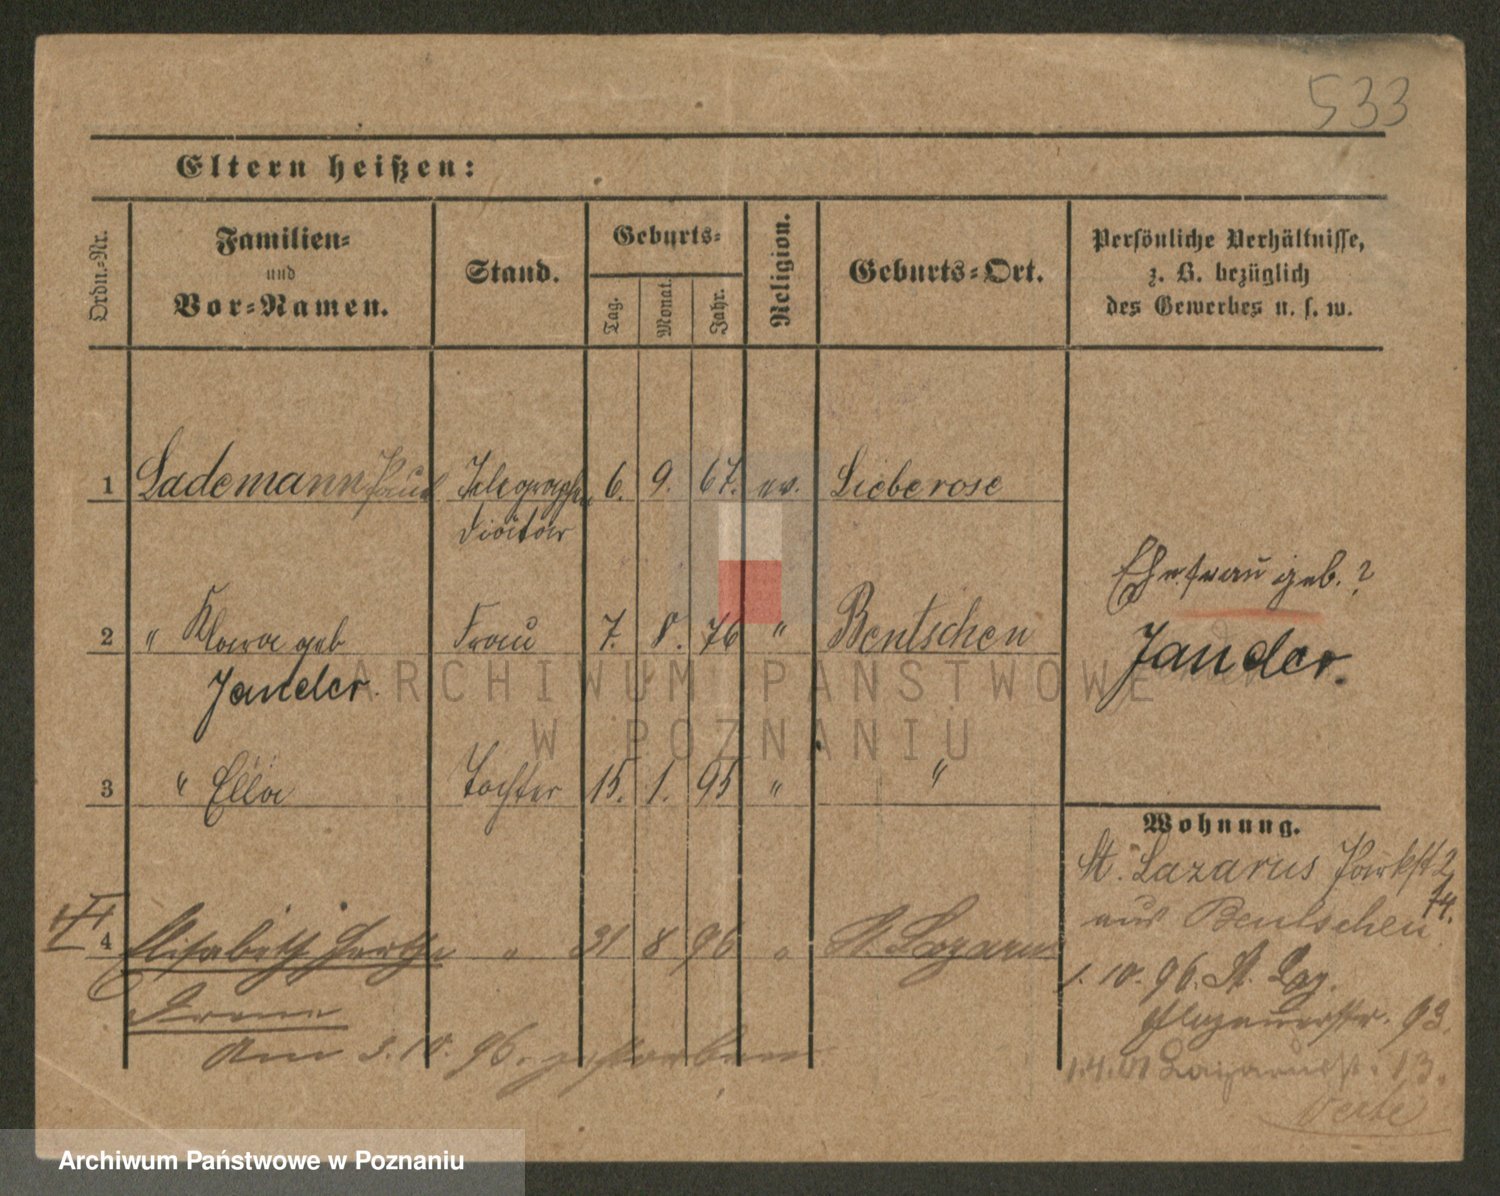 533
Eltern heißen:
Ordn.-Nr.
Familien- und Vor-Namen.
Stand.
Geburts-
Tag.
Monat.
Jahr.
Religion.
Geburts-Ort.
Persönliche Verhältnisse,
z. B. bezüglich
des Gewerbes u. s. w.
1 Lademann Paul Telegraphen 6. 9. 67. ev. Lieberose
Ehefrau geb. ?
2 " Klara geb Frau 7. 8. 76 " Bentschen
Jander.
Jander.
3 " Ella Tochter 15. 1. 95 " "
Wohnung.
St. Lazarus Parkst 2
74.
aus Bentschen
4 Elisabeth Martha " 31 8 96 " St. Lazarus
1. 10. 96. St. Laz.
Glogauerstr. 93.
Am 3. 10. 96. gestorben
1.4.01 Lazarusst. 13.
ARCHIWUM PAŃSTWOWE
W POZNANIU
Archiwum Państwowe w Poznaniu